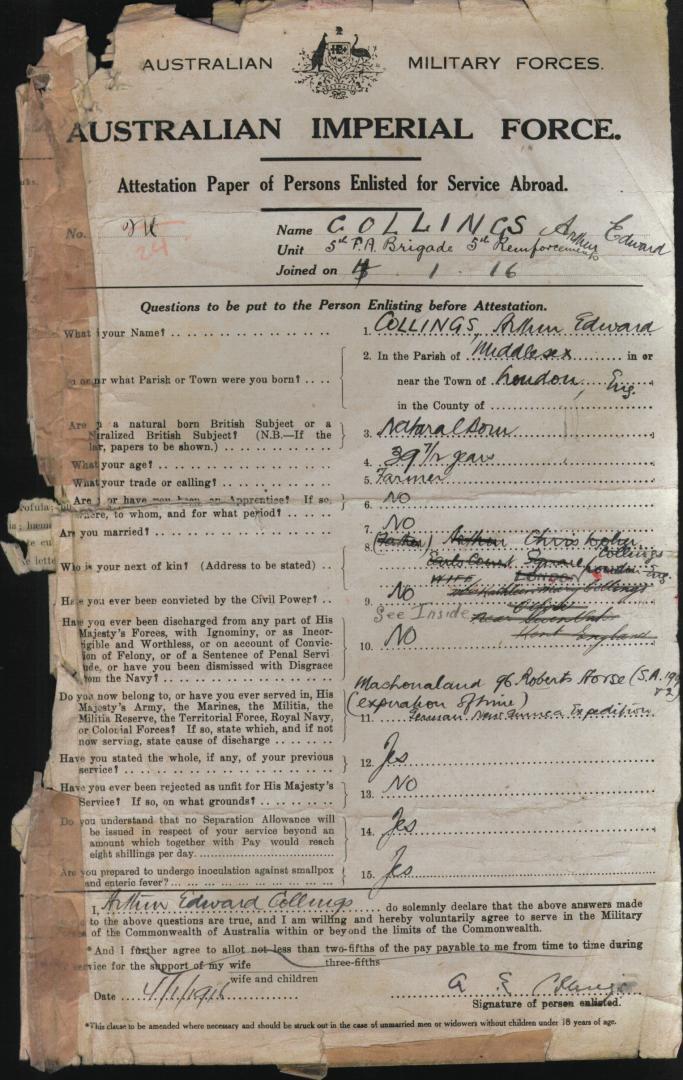 AUSTRALIAN MILITARY FORCES.
AUSTRALIAN IMPERIAL FORCE.
Attestation Paper of Persons Enlisted for Service Abroad.
No. 24
Name COLLINGS Arthur Edward
Unit 5th F.A. Brigade 5th Reinforcements
Joined on 4 . 1 . 16
Questions to be put to the Person Enlisting before Attestation.
What is your Name?
1. COLLINGS, Arthur Edward
In or near what Parish or Town were you born?
2. In the Parish of Middlesex in or
near the Town of London, Eng.
in the County of
a natural born British Subject or a
British Subject? (N.B.—If the
papers to be shown.)
3. Natural born
What is your age?
4. 39 7/12 years
What is your trade or calling?
5. Farmer
Are you or have you been an Apprentice? If so,
where, to whom, and for what period?
6. NO
Are you married?
7. NO
Who is your next of kin? (Address to be stated)
8. (Father) Arthur Christopher
Collings
Earls Court Square London Eng.
WIFE LONDON
Collings
Have you ever been convicted by the Civil Power?
9. NO
See Inside near
Kent England
Have you ever been discharged from any part of His
Majesty's Forces, with Ignominy, or as Incor-
rigible and Worthless, or on account of Convic-
tion of Felony, or of a Sentence of Penal Servi
tude, or have you been dismissed with Disgrace
from the Navy?
10. NO
Do you now belong to, or have you ever served in, His
Majesty's Army, the Marines, the Militia, the
Militia Reserve, the Territorial Force, Royal Navy,
or Colonial Forces? If so, state which, and if not
now serving, state cause of discharge
Mashonaland 96. Roberts Horse (S.A.
(expiration of time)
11. German New Guinea Expedition
Have you stated the whole, if any, of your previous
service?
12. Yes
Have you ever been rejected as unfit for His Majesty's
Service? If so, on what grounds?
13. NO
Do you understand that no Separation Allowance will
be issued in respect of your service beyond an
amount which together with Pay would reach
eight shillings per day.
14. Yes
Are you prepared to undergo inoculation against smallpox
and enteric fever?
15. Yes
I, Arthur Edward Collings do solemnly declare that the above answers made
to the above questions are true, and I am willing and hereby voluntarily agree to serve in the Military
of the Commonwealth of Australia within or beyond the limits of the Commonwealth.
*And I further agree to allot not less than two-fifths of the pay payable to me from time to time during
three-fifths
service for the support of my wife
wife and children
Date 4/1/1916
A E Collings
Signature of person enlisted.
*This clause to be amended where necessary and should be struck out in the case of unmarried men or widowers without children under 18 years of age.